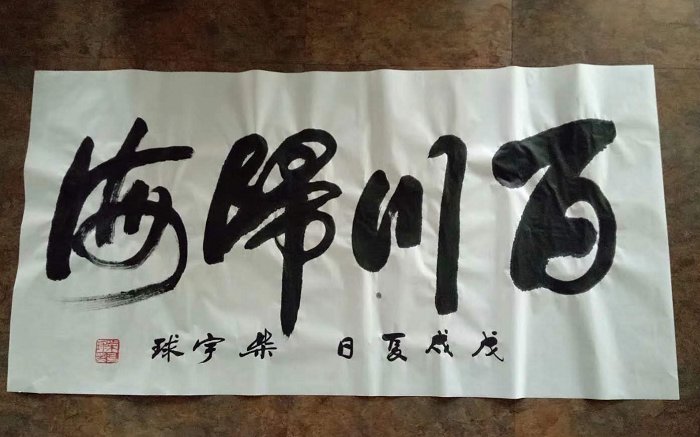 百川歸海
戊戌夏日 柴宇球